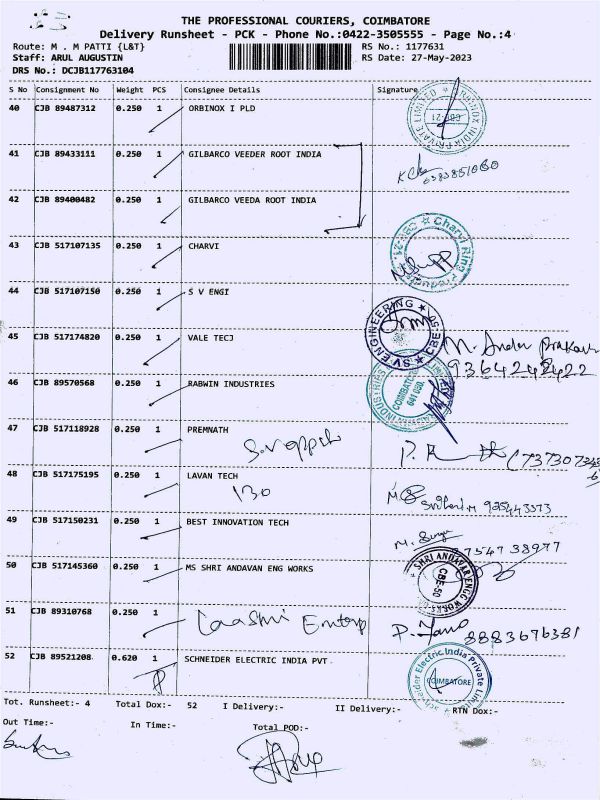 THE PROFESSIONAL COURIERS, COIMBATORE
Delivery Runsheet - PCK - Phone No.:0422-3505555 - Page No.:4
Route: M . M PATTI {L&T} RS No.: 1177631
Staff: ARUL AUGUSTIN RS Date: 27-May-2023
DRS No.: DCJB117763104
S No Consignment No Weight PCS Consignee Details Signature
40 CJB 89487312 0.250 1 ORBINOX I PLD
41 CJB 89433111 0.250 1 GILBARCO VEEDER ROOT INDIA
42 CJB 89400482 0.250 1 GILBARCO VEEDA ROOT INDIA
43 CJB 517107135 0.250 1 CHARVI
44 CJB 517107150 0.250 1 S V ENGI
SV ENGINEERING ★ CBE
45 CJB 517174820 0.250 1 VALE TECJ
9364242422
46 CJB 89570568 0.250 1 RABWIN INDUSTRIES
INDUSTRIES COIMBATORE
47 CJB 517118928 0.250 1 PREMNATH
48 CJB 517175195 0.250 1 LAVAN TECH
130
49 CJB 517150231 0.250 1 BEST INNOVATION TECH
M. Surya
7547 38977
50 CJB 517145360 0.250 1 MS SHRI ANDAVAN ENG WORKS
SHRI ANDAVAR ENGG WORKS CBE-50
51 CJB 89310768 0.250 1 Laashri Enterp
8883676381
52 CJB 89521208 0.620 1 SCHNEIDER ELECTRIC INDIA PVT
Schneider Electric India Private Limited COIMBATORE
Tot. Runsheet:- 4 Total Dox:- 52 I Delivery:- II Delivery:- RTN Dox:-
Out Time:- In Time:- Total POD:-